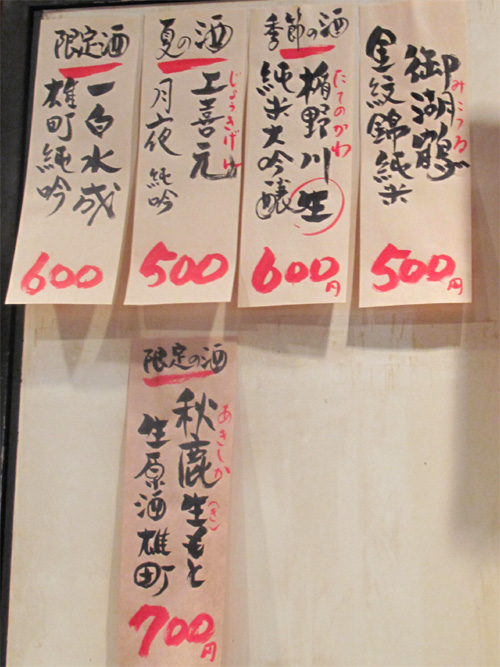 御湖鶴
みこつる
金紋錦純米
500円
季節の酒
楯野川 生
たてのかわ
純米大吟醸
600円
夏の酒
上喜元
じょうきげん
月夜 純吟
500
限定酒
一白水成
雄町純吟
600
限定の酒
秋鹿生もと
あきしか
(き)
生原酒雄町
700円